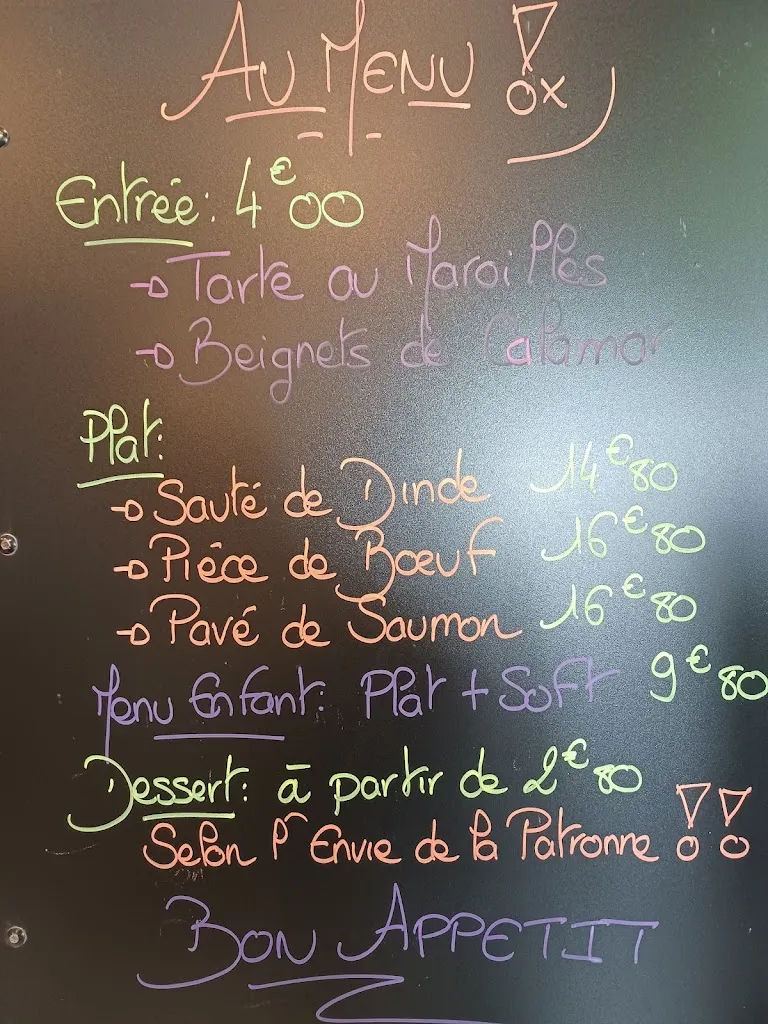 AU MENU !
Entrée : 4€00
→ Tarte au Maroilles
→ Beignets de Calamar
Plat :
→ Sauté de Dinde 14€80
→ Pièce de Bœuf 16€80
→ Pavé de Saumon 16€80
Menu Enfant : Plat + Soft 9€80
Dessert : à partir de 2€80
Selon l'Envie de la Patronne !!
BON APPETIT